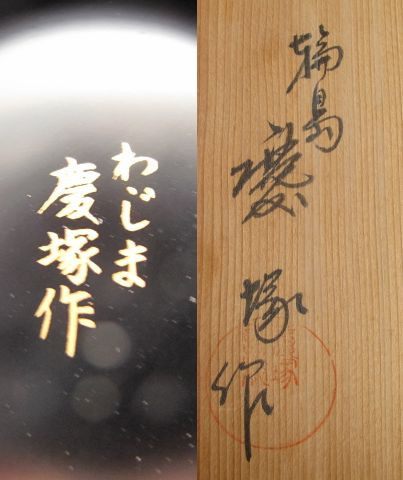 わじま
慶塚作
輪島
慶塚作